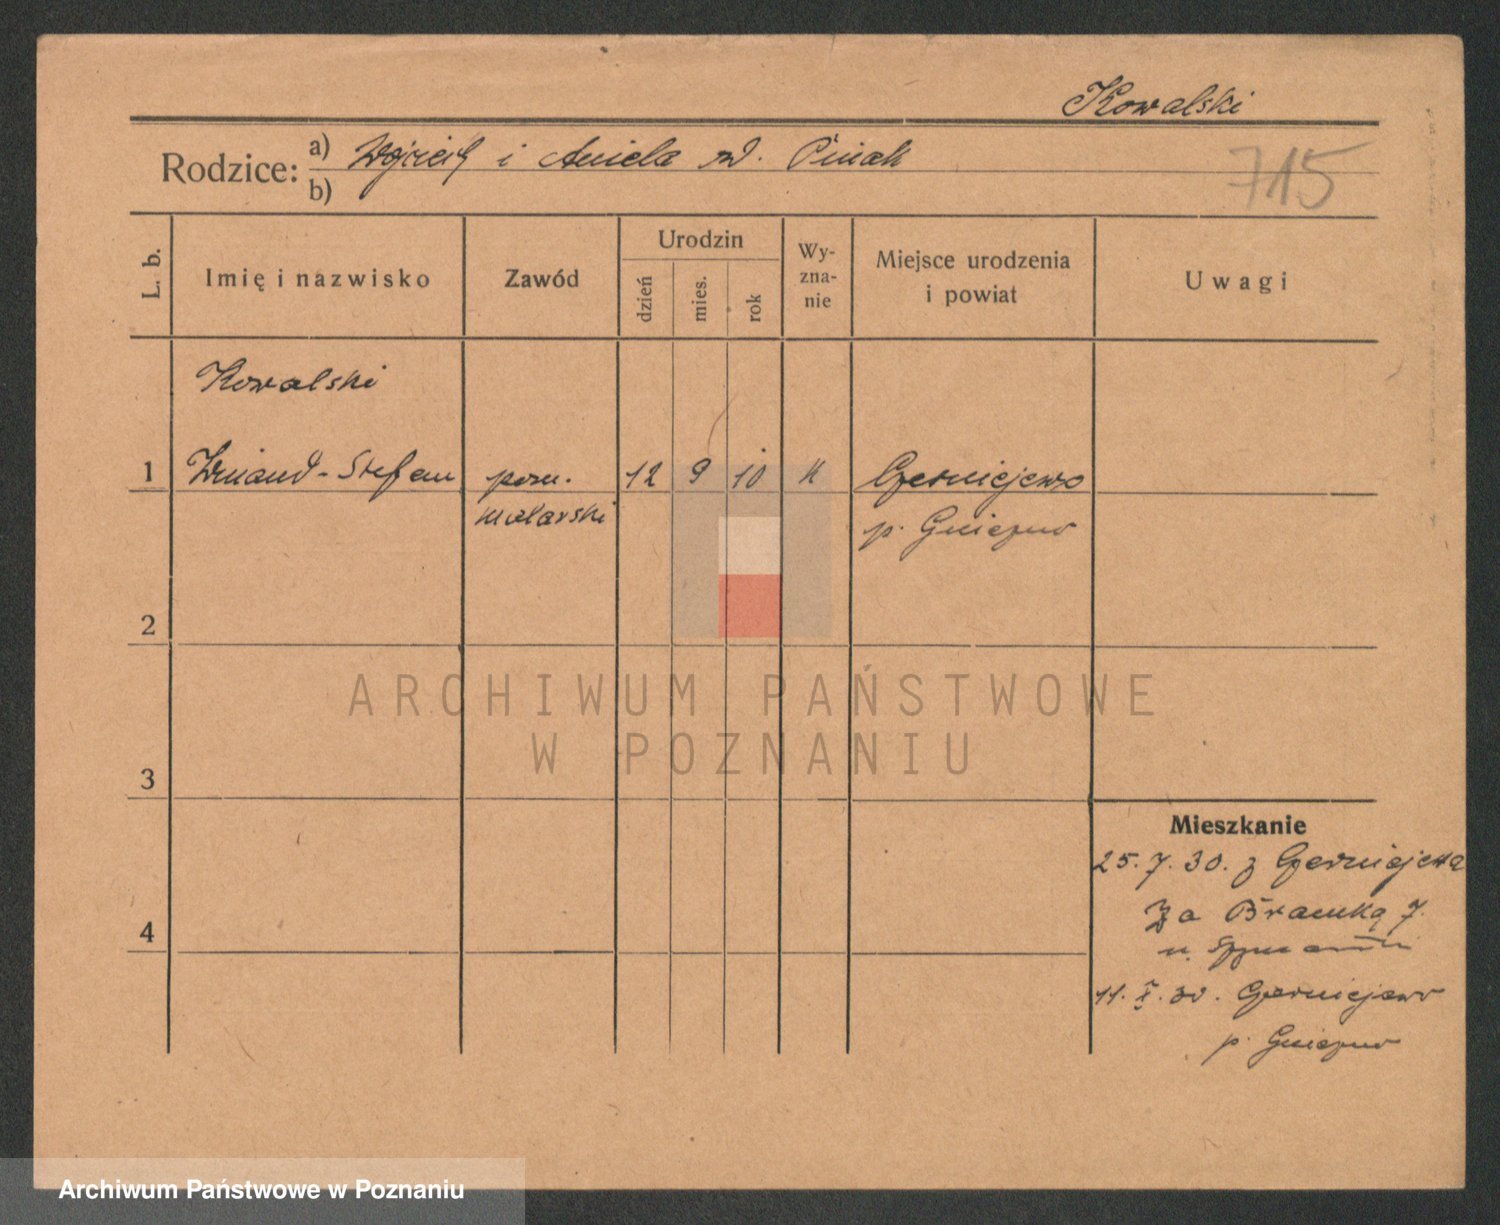 Kowalski
Rodzice: a) Wojciech i Aniela zd. Piniak
b)
715
L. b. Imię i nazwisko Zawód Urodzin dzień mies. rok Wy-zna-nie Miejsce urodzenia i powiat Uwagi
Kowalski
1 Stefan pom. 12 9 10 k Czerniejewo
malarski p. Gniezno
2
3
4
Mieszkanie
25. 7. 30. z Czerniejewa
Za Bramką 7.
u.
11. X. 30. Czerniejewo
p. Gniezno
ARCHIWUM PAŃSTWOWE
W POZNANIU
Archiwum Państwowe w Poznaniu